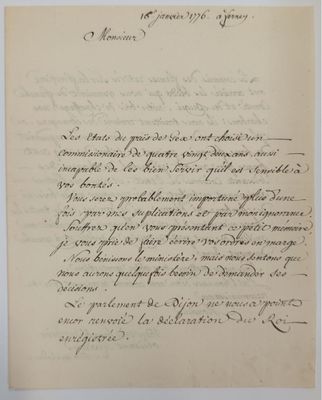 18e janvier 1776, à ferney.
Monsieur
Les Etats du païs de Gex ont choisi un
commissionaire de quatre vingt deux ans aussi
incapable de les bien servir qu'il est sensible à
vos bontés.
Vous serez probablement importuné plus d'une
fois par mes suplications et par mon ignorance.
Souffrez qu'en vous présentant ce petit mémoire,
je vous prie de faire écrire vos ordres en marge.
Nous bénissons le ministère, mais nous sentons que
nous aurons quelquefois besoin de demander ses
décisions.
Le parlement de Dijon ne nous a point
encor renvoié la déclaration du Roi
enrégistrée.